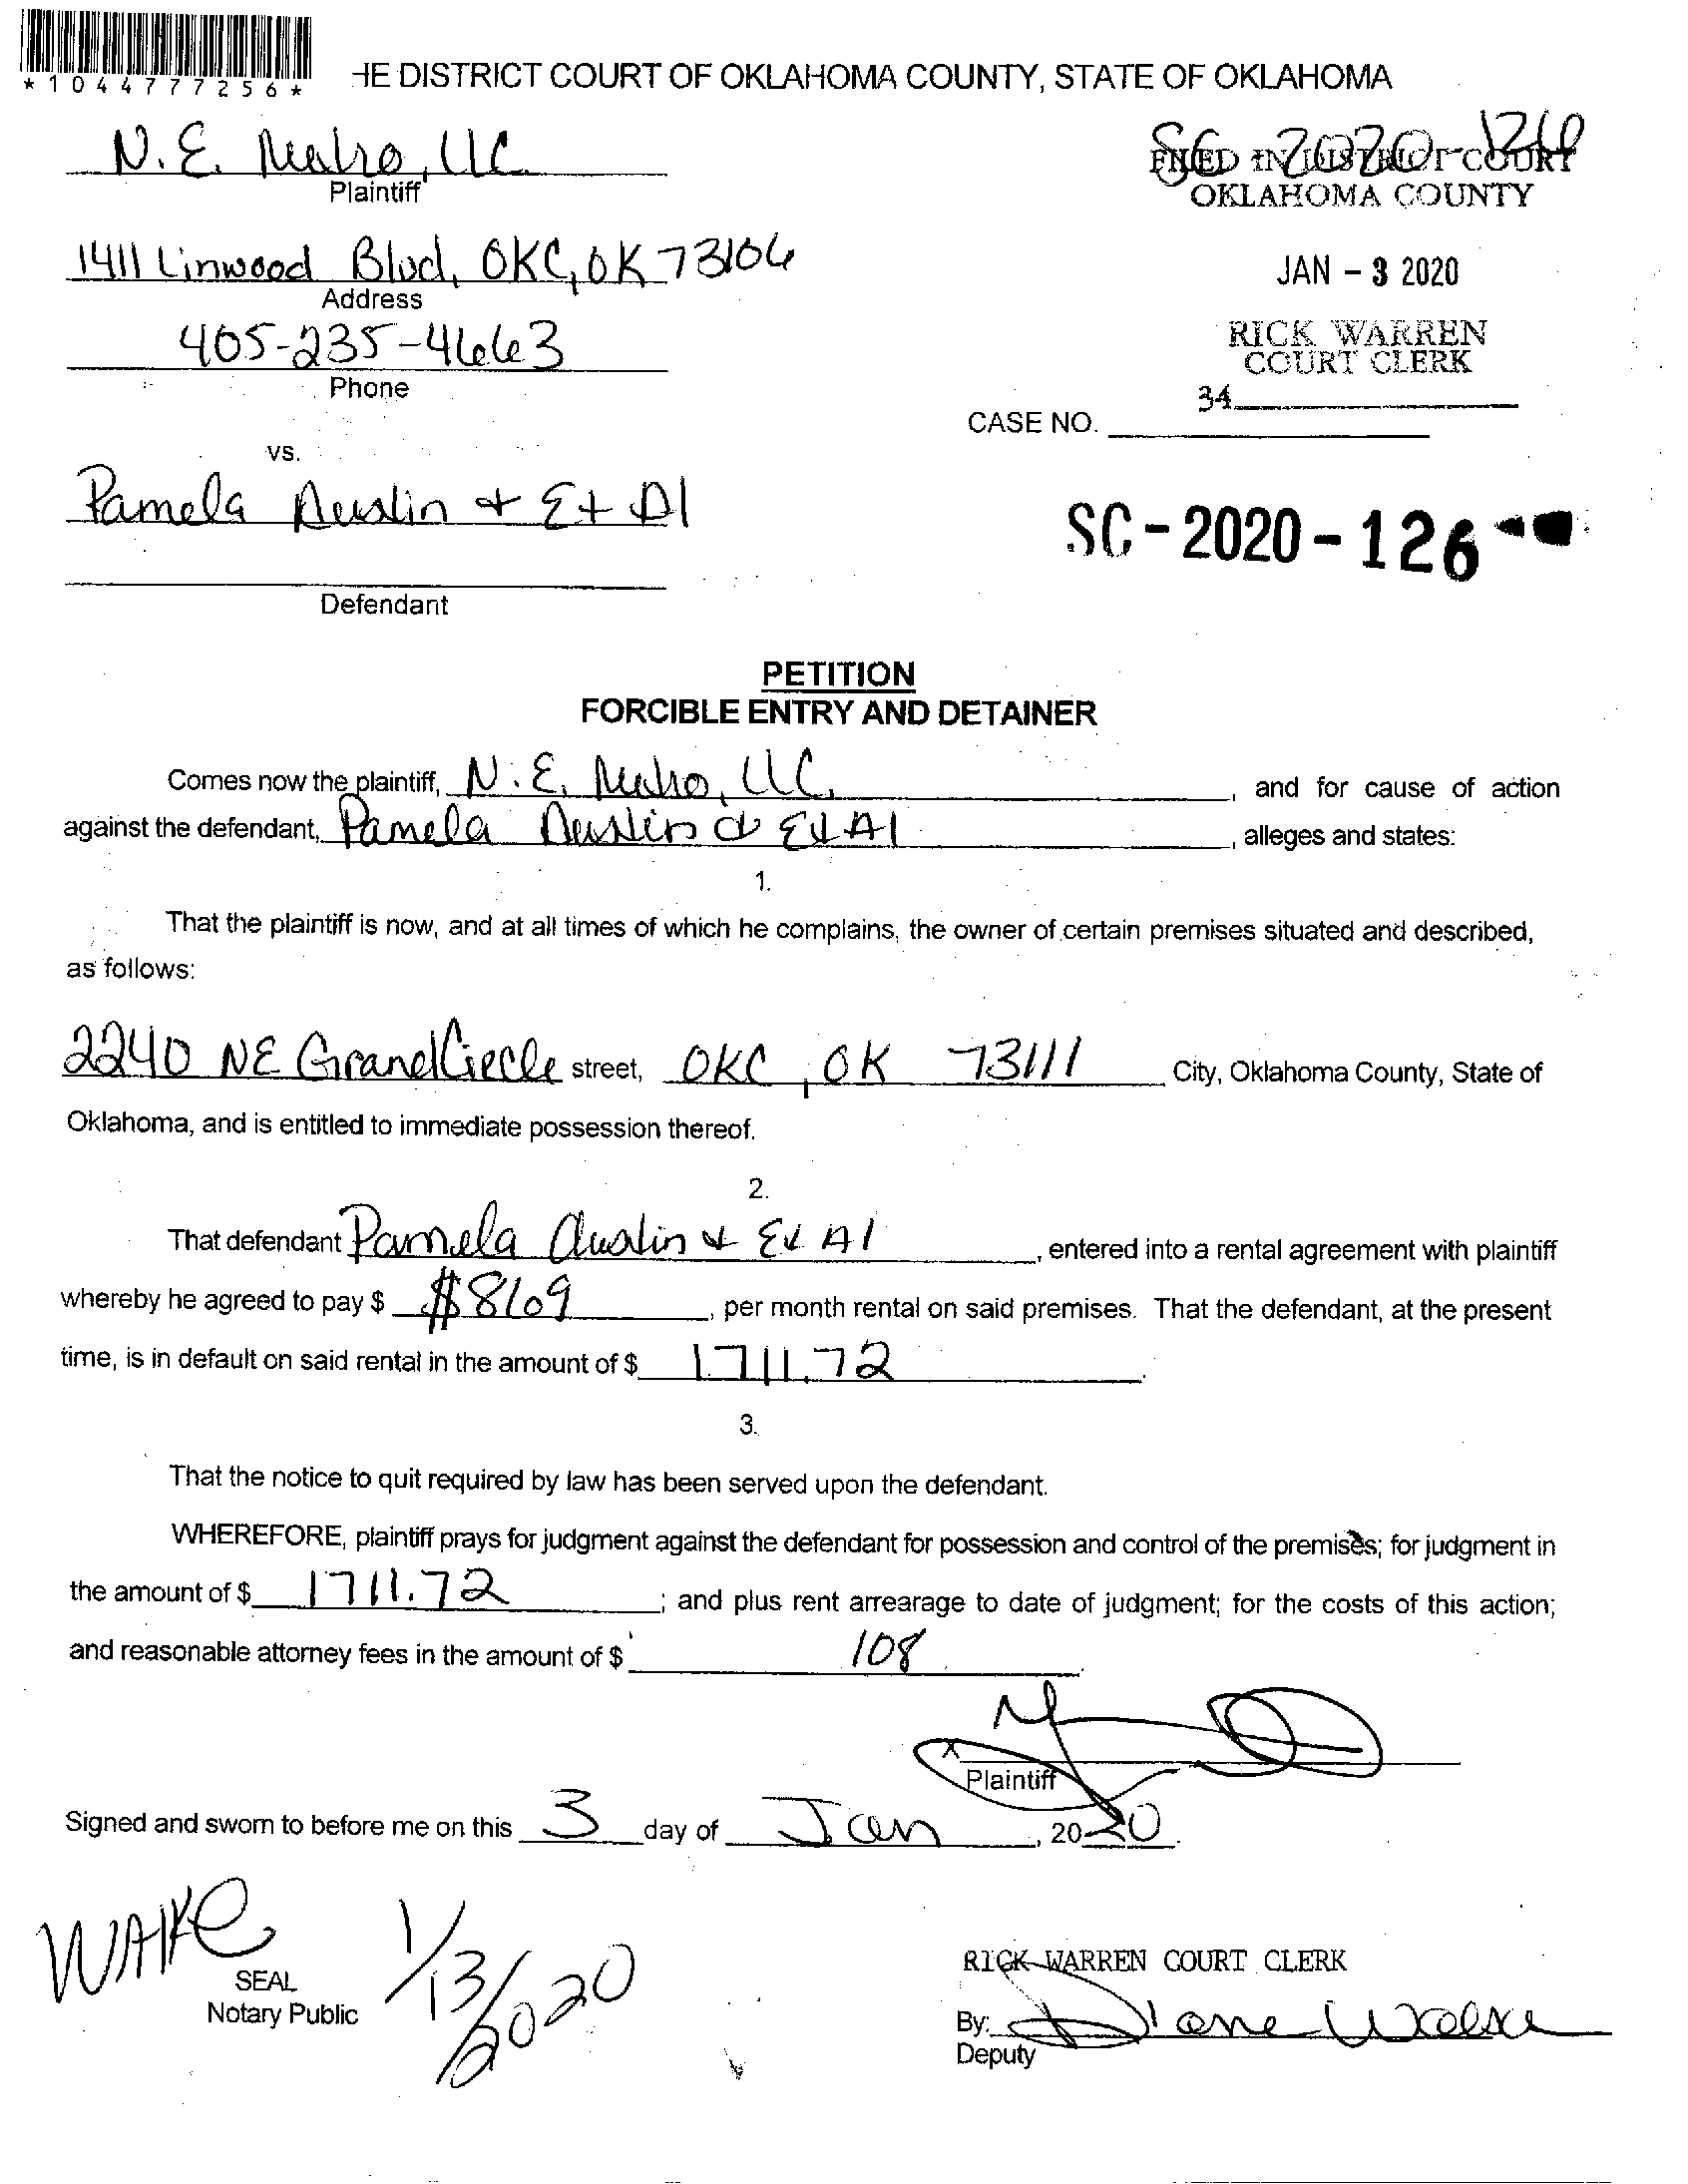 *1044777256*
HE DISTRICT COURT OF OKLAHOMA COUNTY, STATE OF OKLAHOMA
N.E. Metro, LLC
Plaintiff
SC-2020-126
FILED IN DISTRICT COURT
OKLAHOMA COUNTY
1411 Linwood Blvd, OKC, OK 73106
Address
JAN - 3 2020
405-235-4663
Phone
RICK WARREN
COURT CLERK
34
CASE NO.
vs.
Pamela Austin & Et Al
SC - 2020 - 126
Defendant
PETITION
FORCIBLE ENTRY AND DETAINER
Comes now the plaintiff, N.E. Metro, LLC, and for cause of action
against the defendant, Pamela Austin & Et Al, alleges and states:
1.
That the plaintiff is now, and at all times of which he complains, the owner of certain premises situated and described,
as follows:
2240 NE Grand Circle street, OKC, OK 73111 City, Oklahoma County, State of
Oklahoma, and is entitled to immediate possession thereof.
2.
That defendant Pamela Austin & Et Al, entered into a rental agreement with plaintiff
whereby he agreed to pay $ $869, per month rental on said premises. That the defendant, at the present
time, is in default on said rental in the amount of $ 1711.72.
3.
That the notice to quit required by law has been served upon the defendant.
WHEREFORE, plaintiff prays for judgment against the defendant for possession and control of the premises; for judgment in
the amount of $ 1711.72; and plus rent arrearage to date of judgment; for the costs of this action;
and reasonable attorney fees in the amount of $ 108.
X
Plaintiff
Signed and sworn to before me on this 3 day of Jan, 2020.
1/13/2020
SEAL
Notary Public
RICK WARREN COURT CLERK
By: Diane
Deputy